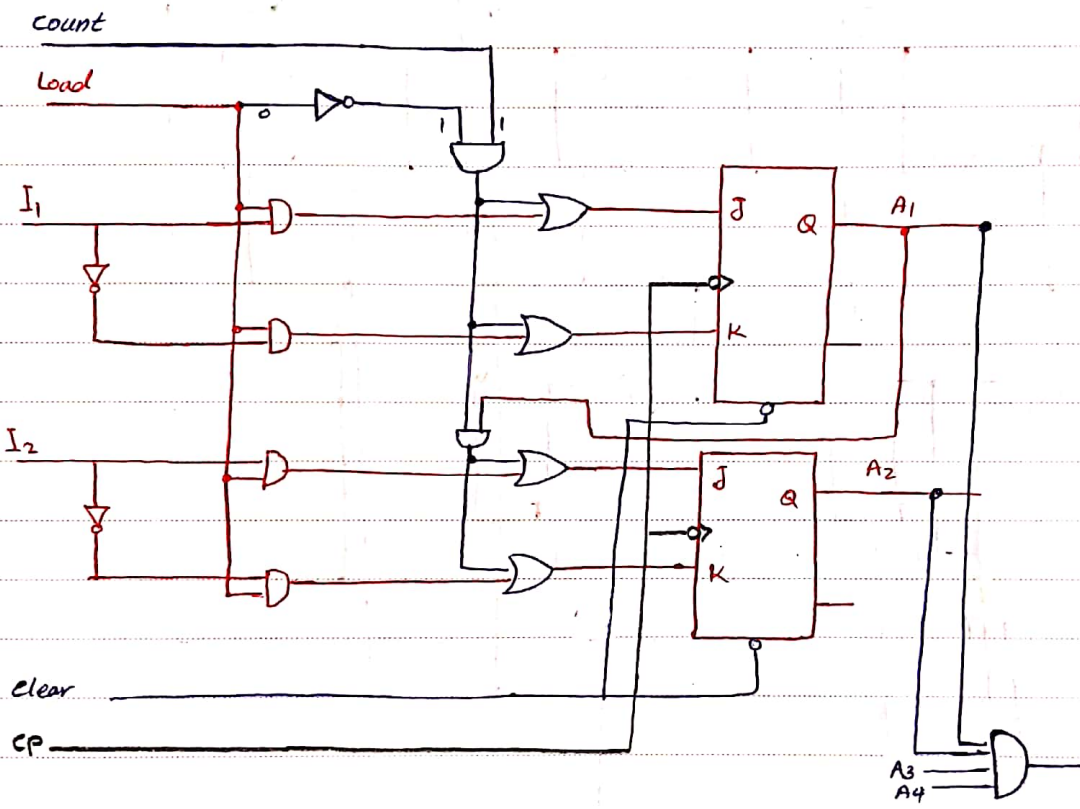 Count
Load
0
1 1
I1
J
Q
A1
K
I2
J
Q
A2
K
Clear
CP
A3
A4